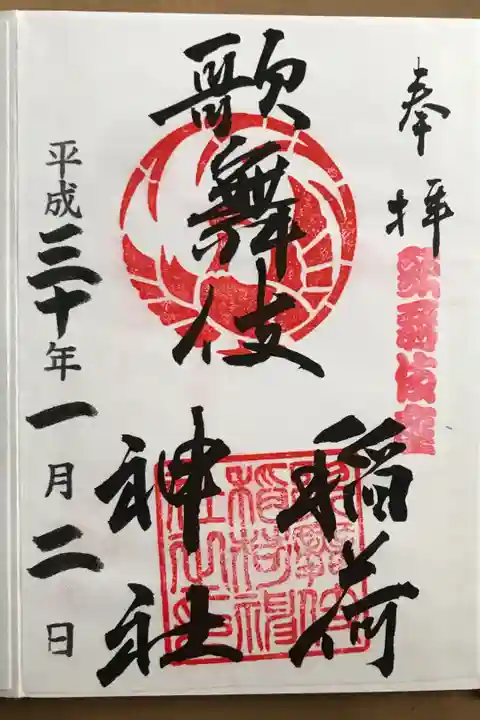 奉拝
歌舞伎座
歌舞伎
稲荷
神社
歌舞伎稲荷神社之印
平成三十年一月二日